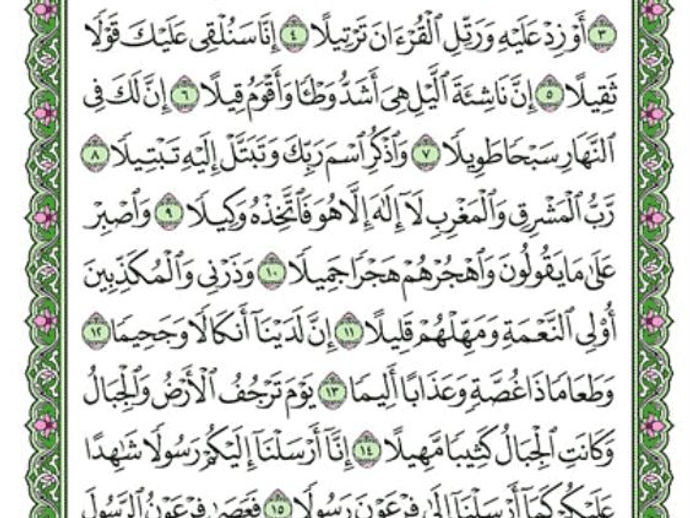 ٣ أَوْ زِدْ عَلَيْهِ وَرَتِّلِ ٱلْقُرْءَانَ تَرْتِيلًا ٤ إِنَّا سَنُلْقِى عَلَيْكَ قَوْلًا
ثَقِيلًا ٥ إِنَّ نَاشِئَةَ ٱلَّيْلِ هِىَ أَشَدُّ وَطْـًٔا وَأَقْوَمُ قِيلًا ٦ إِنَّ لَكَ فِى
ٱلنَّهَارِ سَبْحًا طَوِيلًا ٧ وَٱذْكُرِ ٱسْمَ رَبِّكَ وَتَبَتَّلْ إِلَيْهِ تَبْتِيلًا ٨
رَّبُّ ٱلْمَشْرِقِ وَٱلْمَغْرِبِ لَآ إِلَٰهَ إِلَّا هُوَ فَٱتَّخِذْهُ وَكِيلًا ٩ وَٱصْبِرْ
عَلَىٰ مَا يَقُولُونَ وَٱهْجُرْهُمْ هَجْرًا جَمِيلًا ١٠ وَذَرْنِى وَٱلْمُكَذِّبِينَ
أُو۟لِى ٱلنَّعْمَةِ وَمَهِّلْهُمْ قَلِيلًا ١١ إِنَّ لَدَيْنَآ أَنكَالًا وَجَحِيمًا ١٢
وَطَعَامًا ذَا غُصَّةٍ وَعَذَابًا أَلِيمًا ١٣ يَوْمَ تَرْجُفُ ٱلْأَرْضُ وَٱلْجِبَالُ
وَكَانَتِ ٱلْجِبَالُ كَثِيبًا مَّهِيلًا ١٤ إِنَّآ أَرْسَلْنَآ إِلَيْكُمْ رَسُولًا شَٰهِدًا
عَلَيْكُمْ كَمَآ أَرْسَلْنَآ إِلَىٰ فِرْعَوْنَ رَسُولًا ١٥ فَعَصَىٰ فِرْعَوْنُ ٱلرَّسُولَ